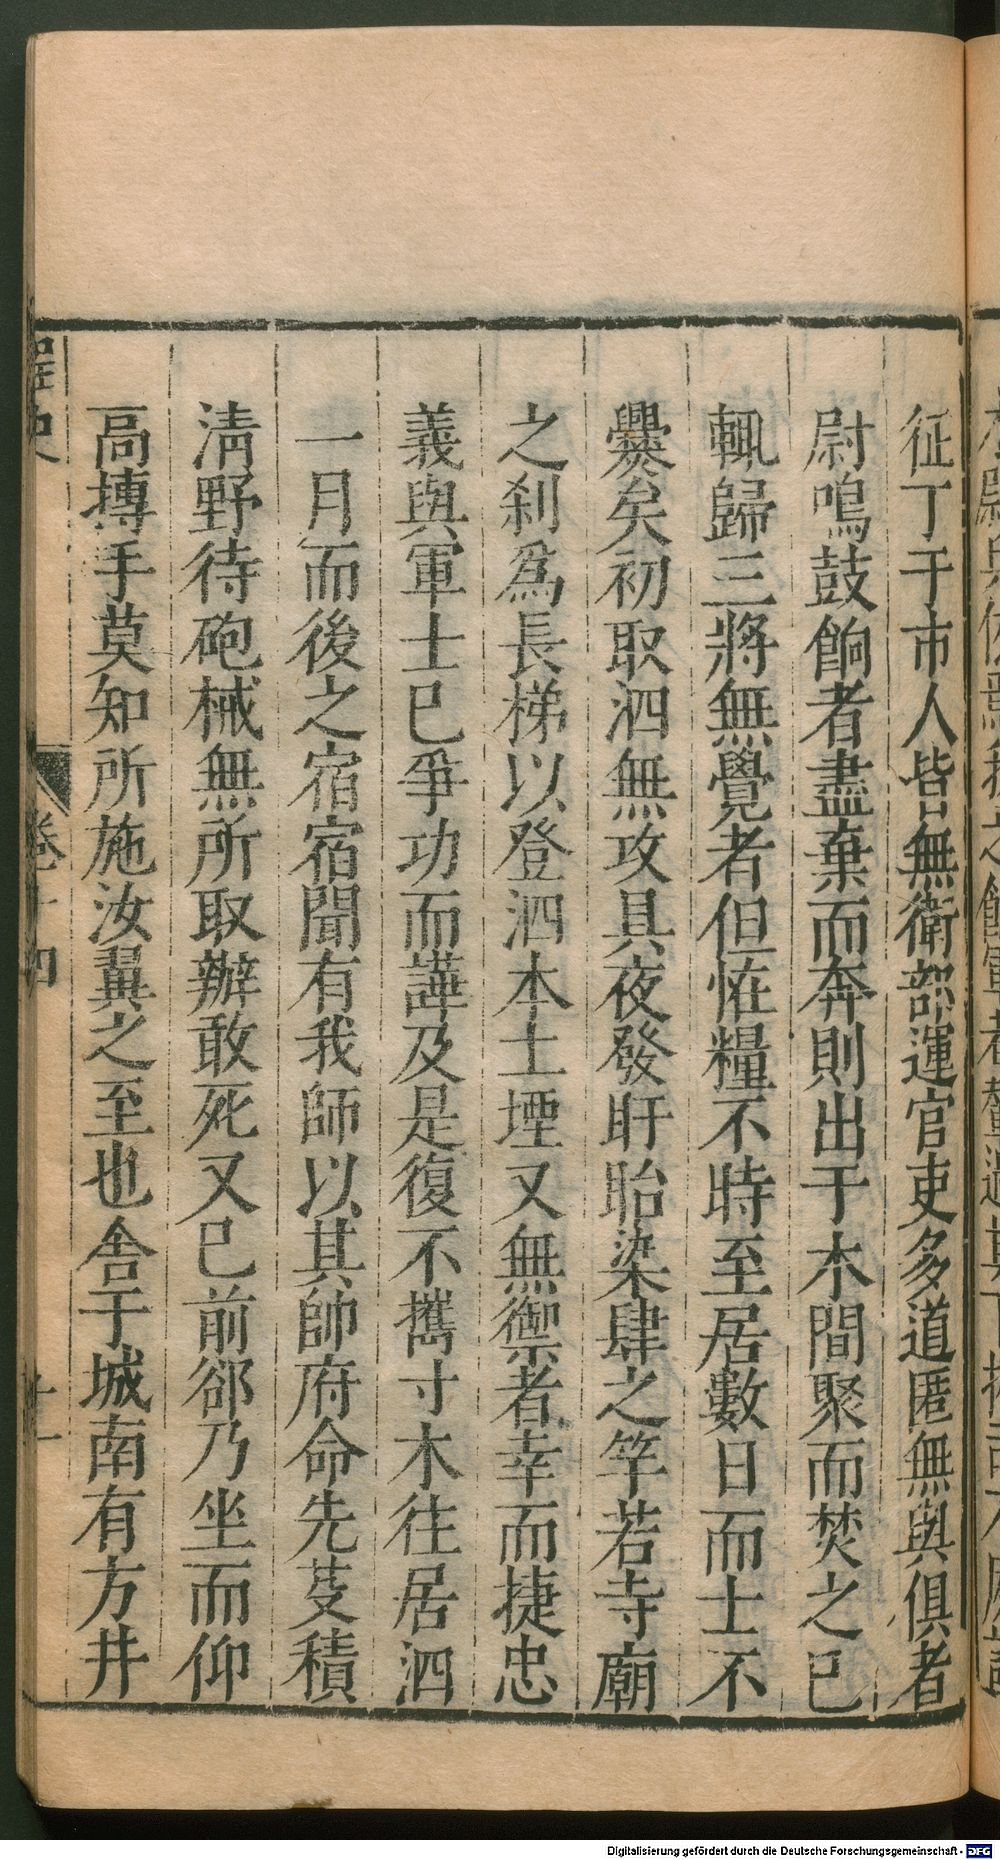 征丁于市人皆無衛部運官吏多道匿無與俱者
尉鳴鼓餉者盡棄而奔則出于木間聚而焚之已
輒歸三將無覺者但恠糧不時至居數日而士不
爨矣初取泗無攻具夜發盱眙染肆之竿若寺廟
之刹爲長梯以登泗本土堙又無禦者幸而捷忠
義與軍士已爭功而譁及是復不攜寸木往居泗
一月而後之宿宿聞有我師以其帥府命先芟積
清野待砲械無所取辦敢死又已前郤乃坐而仰
高摶手莫知所施汝翼之至也舍于城南有方井
桯史
卷十四
十一
Digitalisierung gefördert durch die Deutsche Forschungsgemeinschaft - DFG